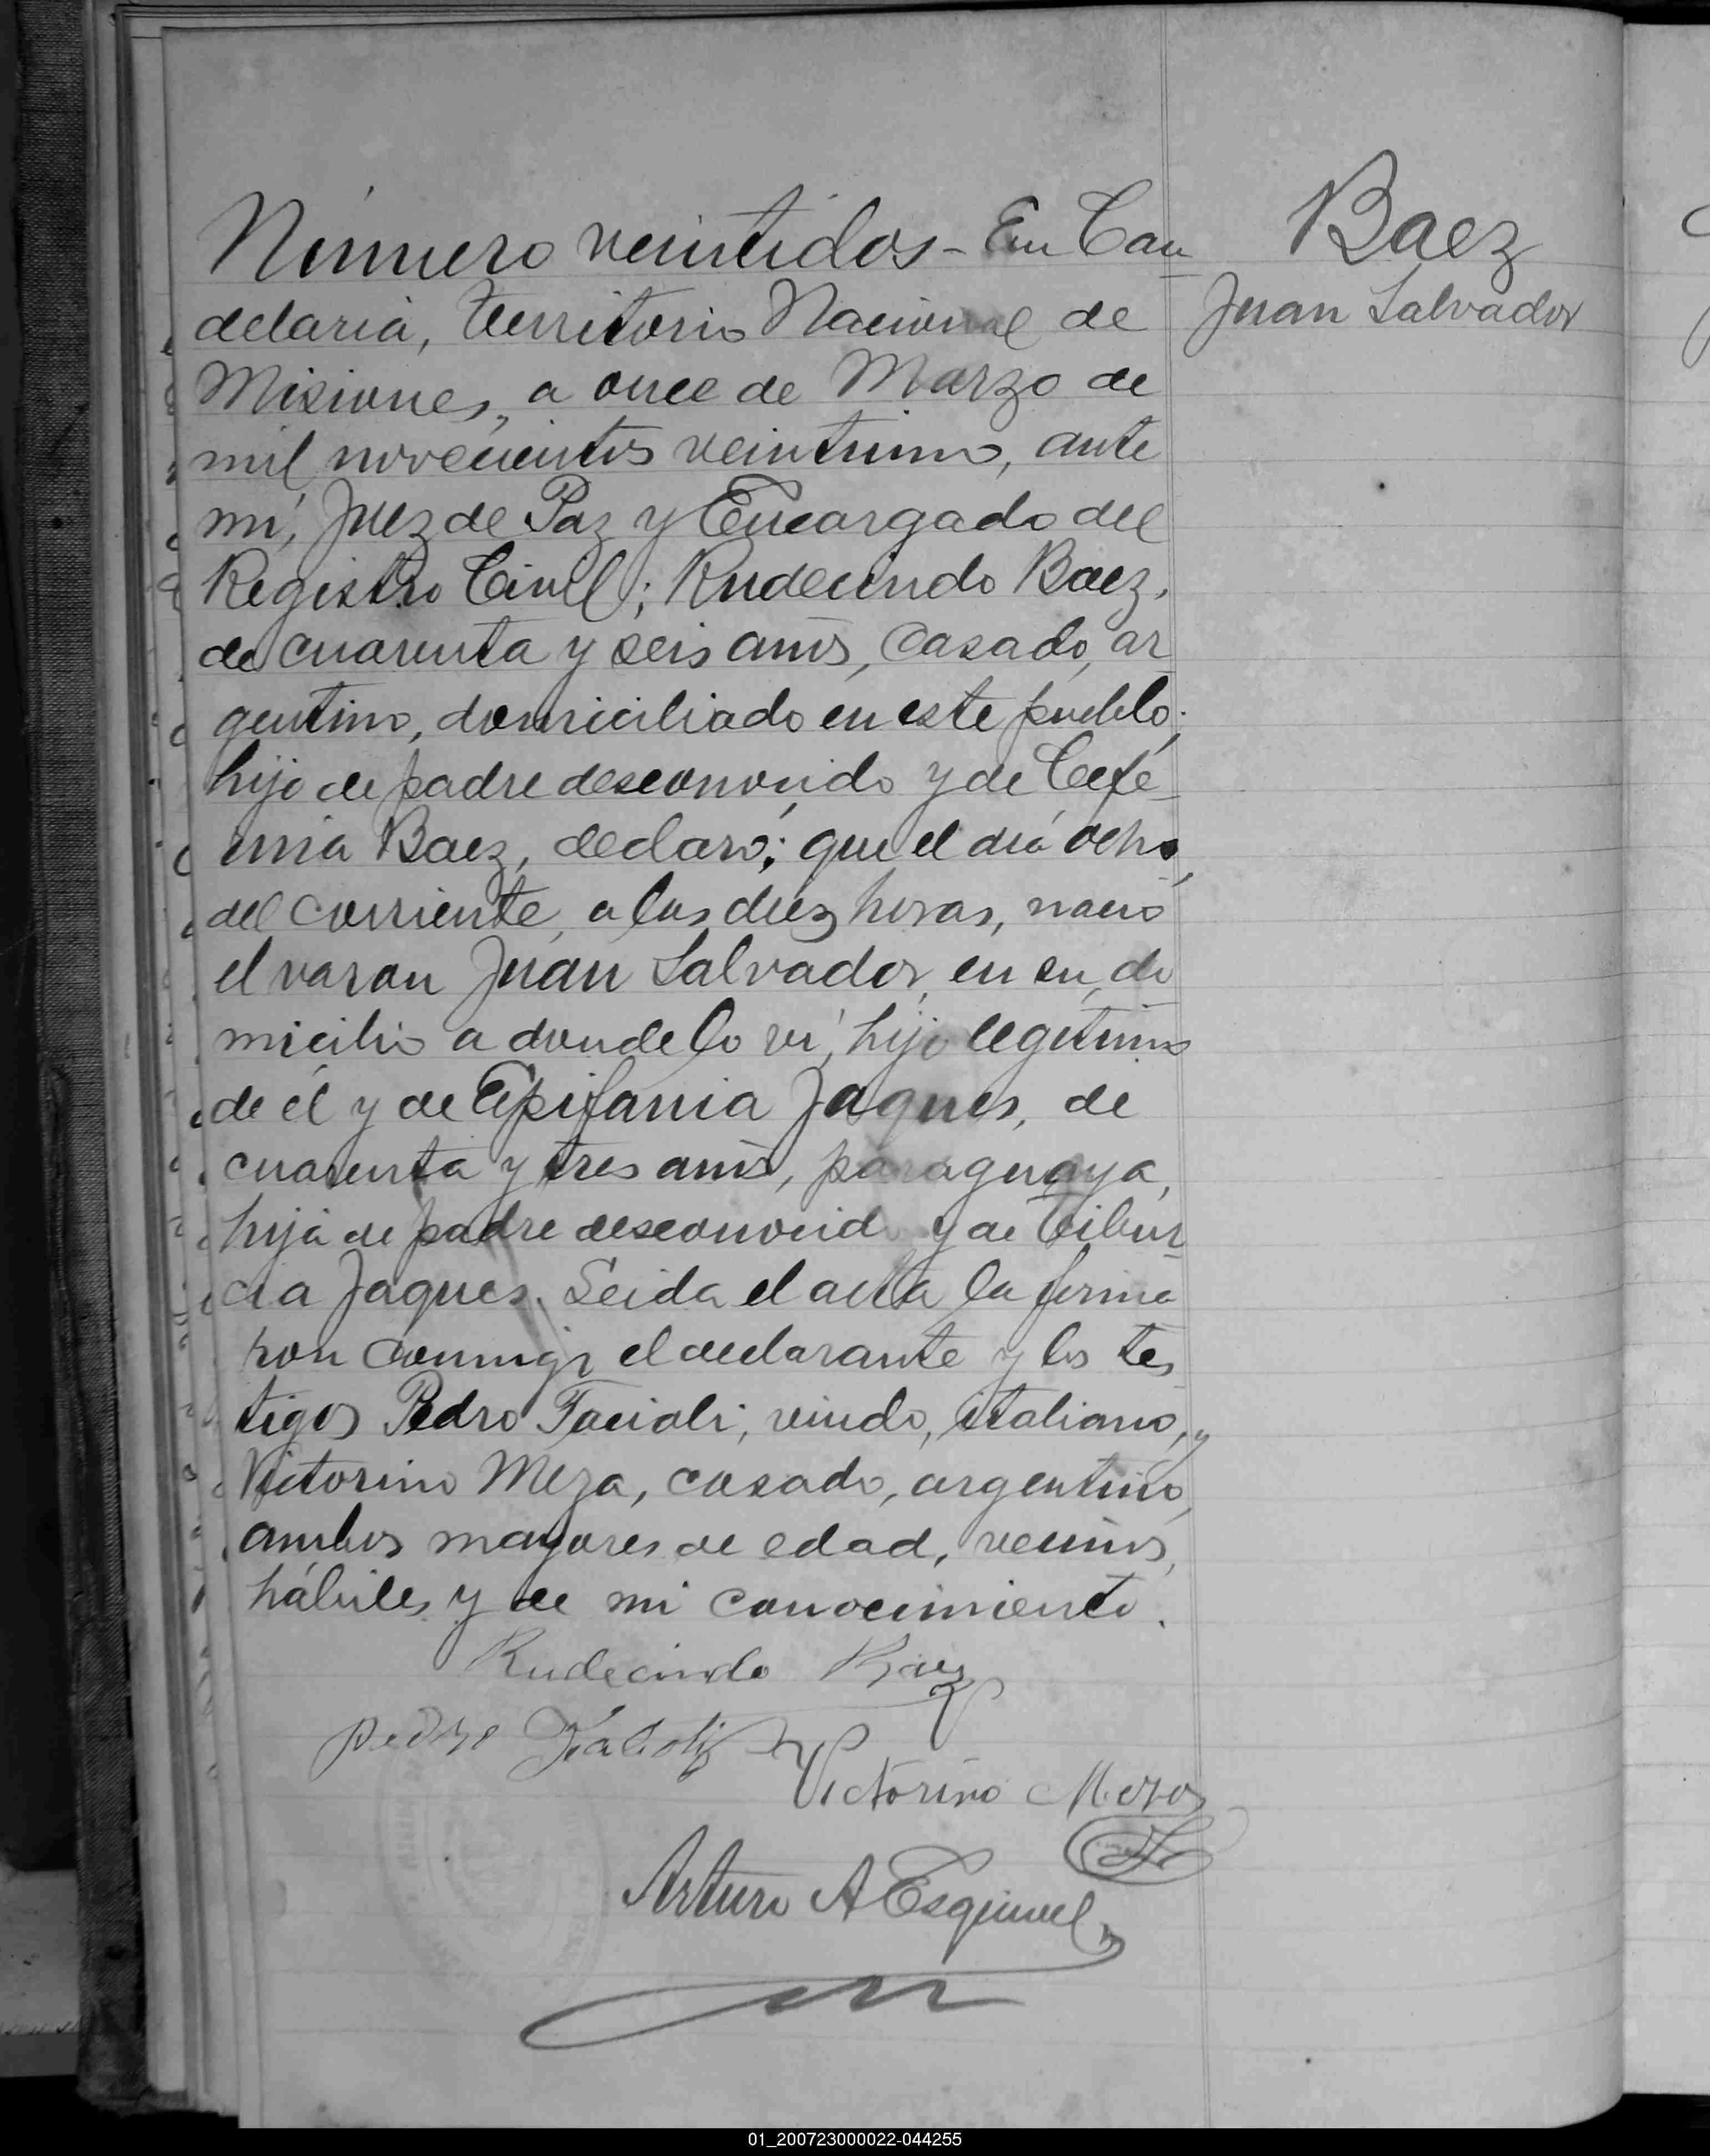 Número veintidos - En Can
delaria, territorio Nacional de
Misiones, a once de Marzo de
mil novecientos veintiuno, ante
mí, Juez de Paz y Encargado del
Registro Civil; Rudecindo Baez,
de cuarenta y seis años, casado, ar
gentino, domiciliado en este pueblo,
hijo de padre desconocido y de Cefé
rina Baez, declaró; que el día ocho
del corriente, a las diez horas, nació
el varon Juan Salvador, en su do
micilio a donde lo ví, hijo legítimo
de él y de Epifania Jaques, de
cuarenta y tres años, paraguaya,
hija de padre desconocido y de Tibur
cia Jaques. Leida el acta la firma
ron conmigo el declarante y los tes
tigos Pedro Facioli, viudo, italiano, y
Victorino Meza, casado, argentino,
ambos mayores de edad, vecinos,
hábiles y de mi conocimiento.
Rudecindo Baez
Pedro
Victorino Meza
Arturo A Esquivel
Baez
Juan Salvador
01_200723000022-044255